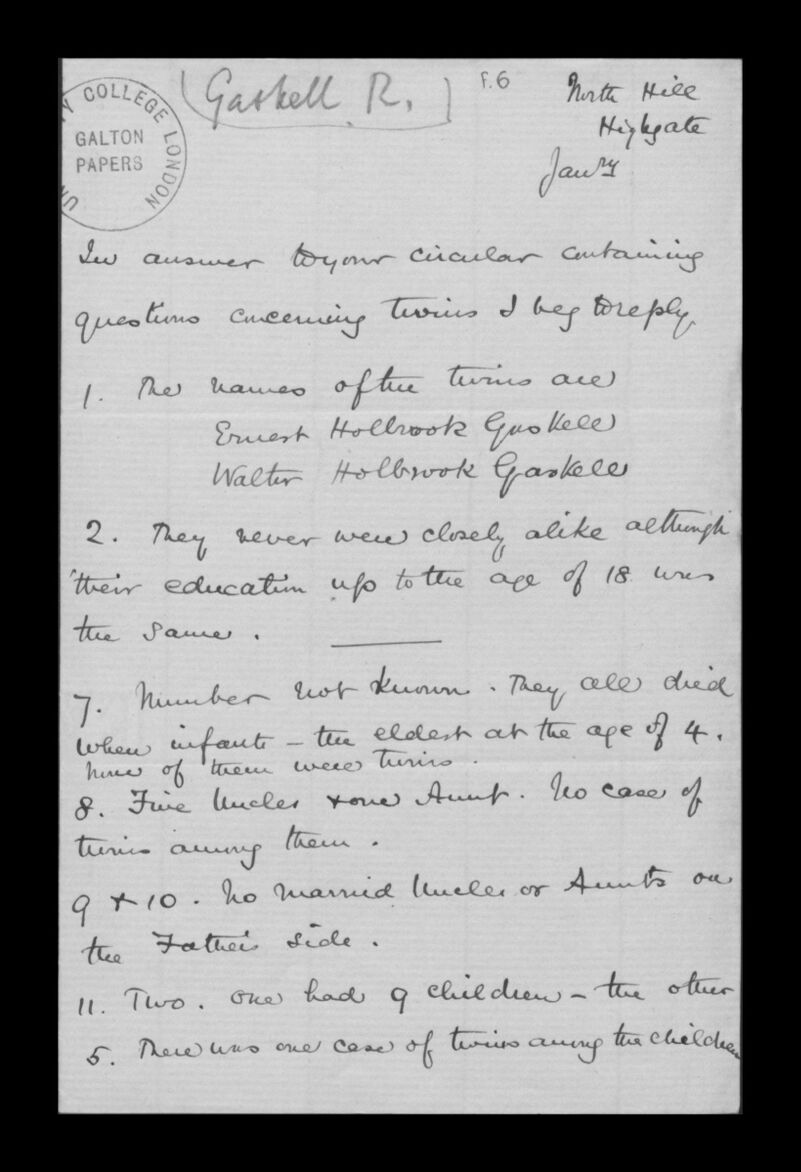 (Gaskell R.)
f.6
North Hill
Highgate
Janry
UNIVERSITY COLLEGE LONDON
GALTON
PAPERS
In answer to your circular containing
questions concerning twins I beg to reply
1. The names of the twins are
Ernest Holbrook Gaskell
Walter Holbrook Gaskell
2. They never were closely alike although
their education up to the age of 18 was
the same.
7. Number not known. They all died
when infants – the eldest at the age of 4.
None of them were twins.
8. Five Uncles & one Aunt. No case of
twins among them.
9 & 10. No married Uncles or Aunts on
the Father's side.
11. Two. One had 9 children – the other
5. There was one case of twins among the children